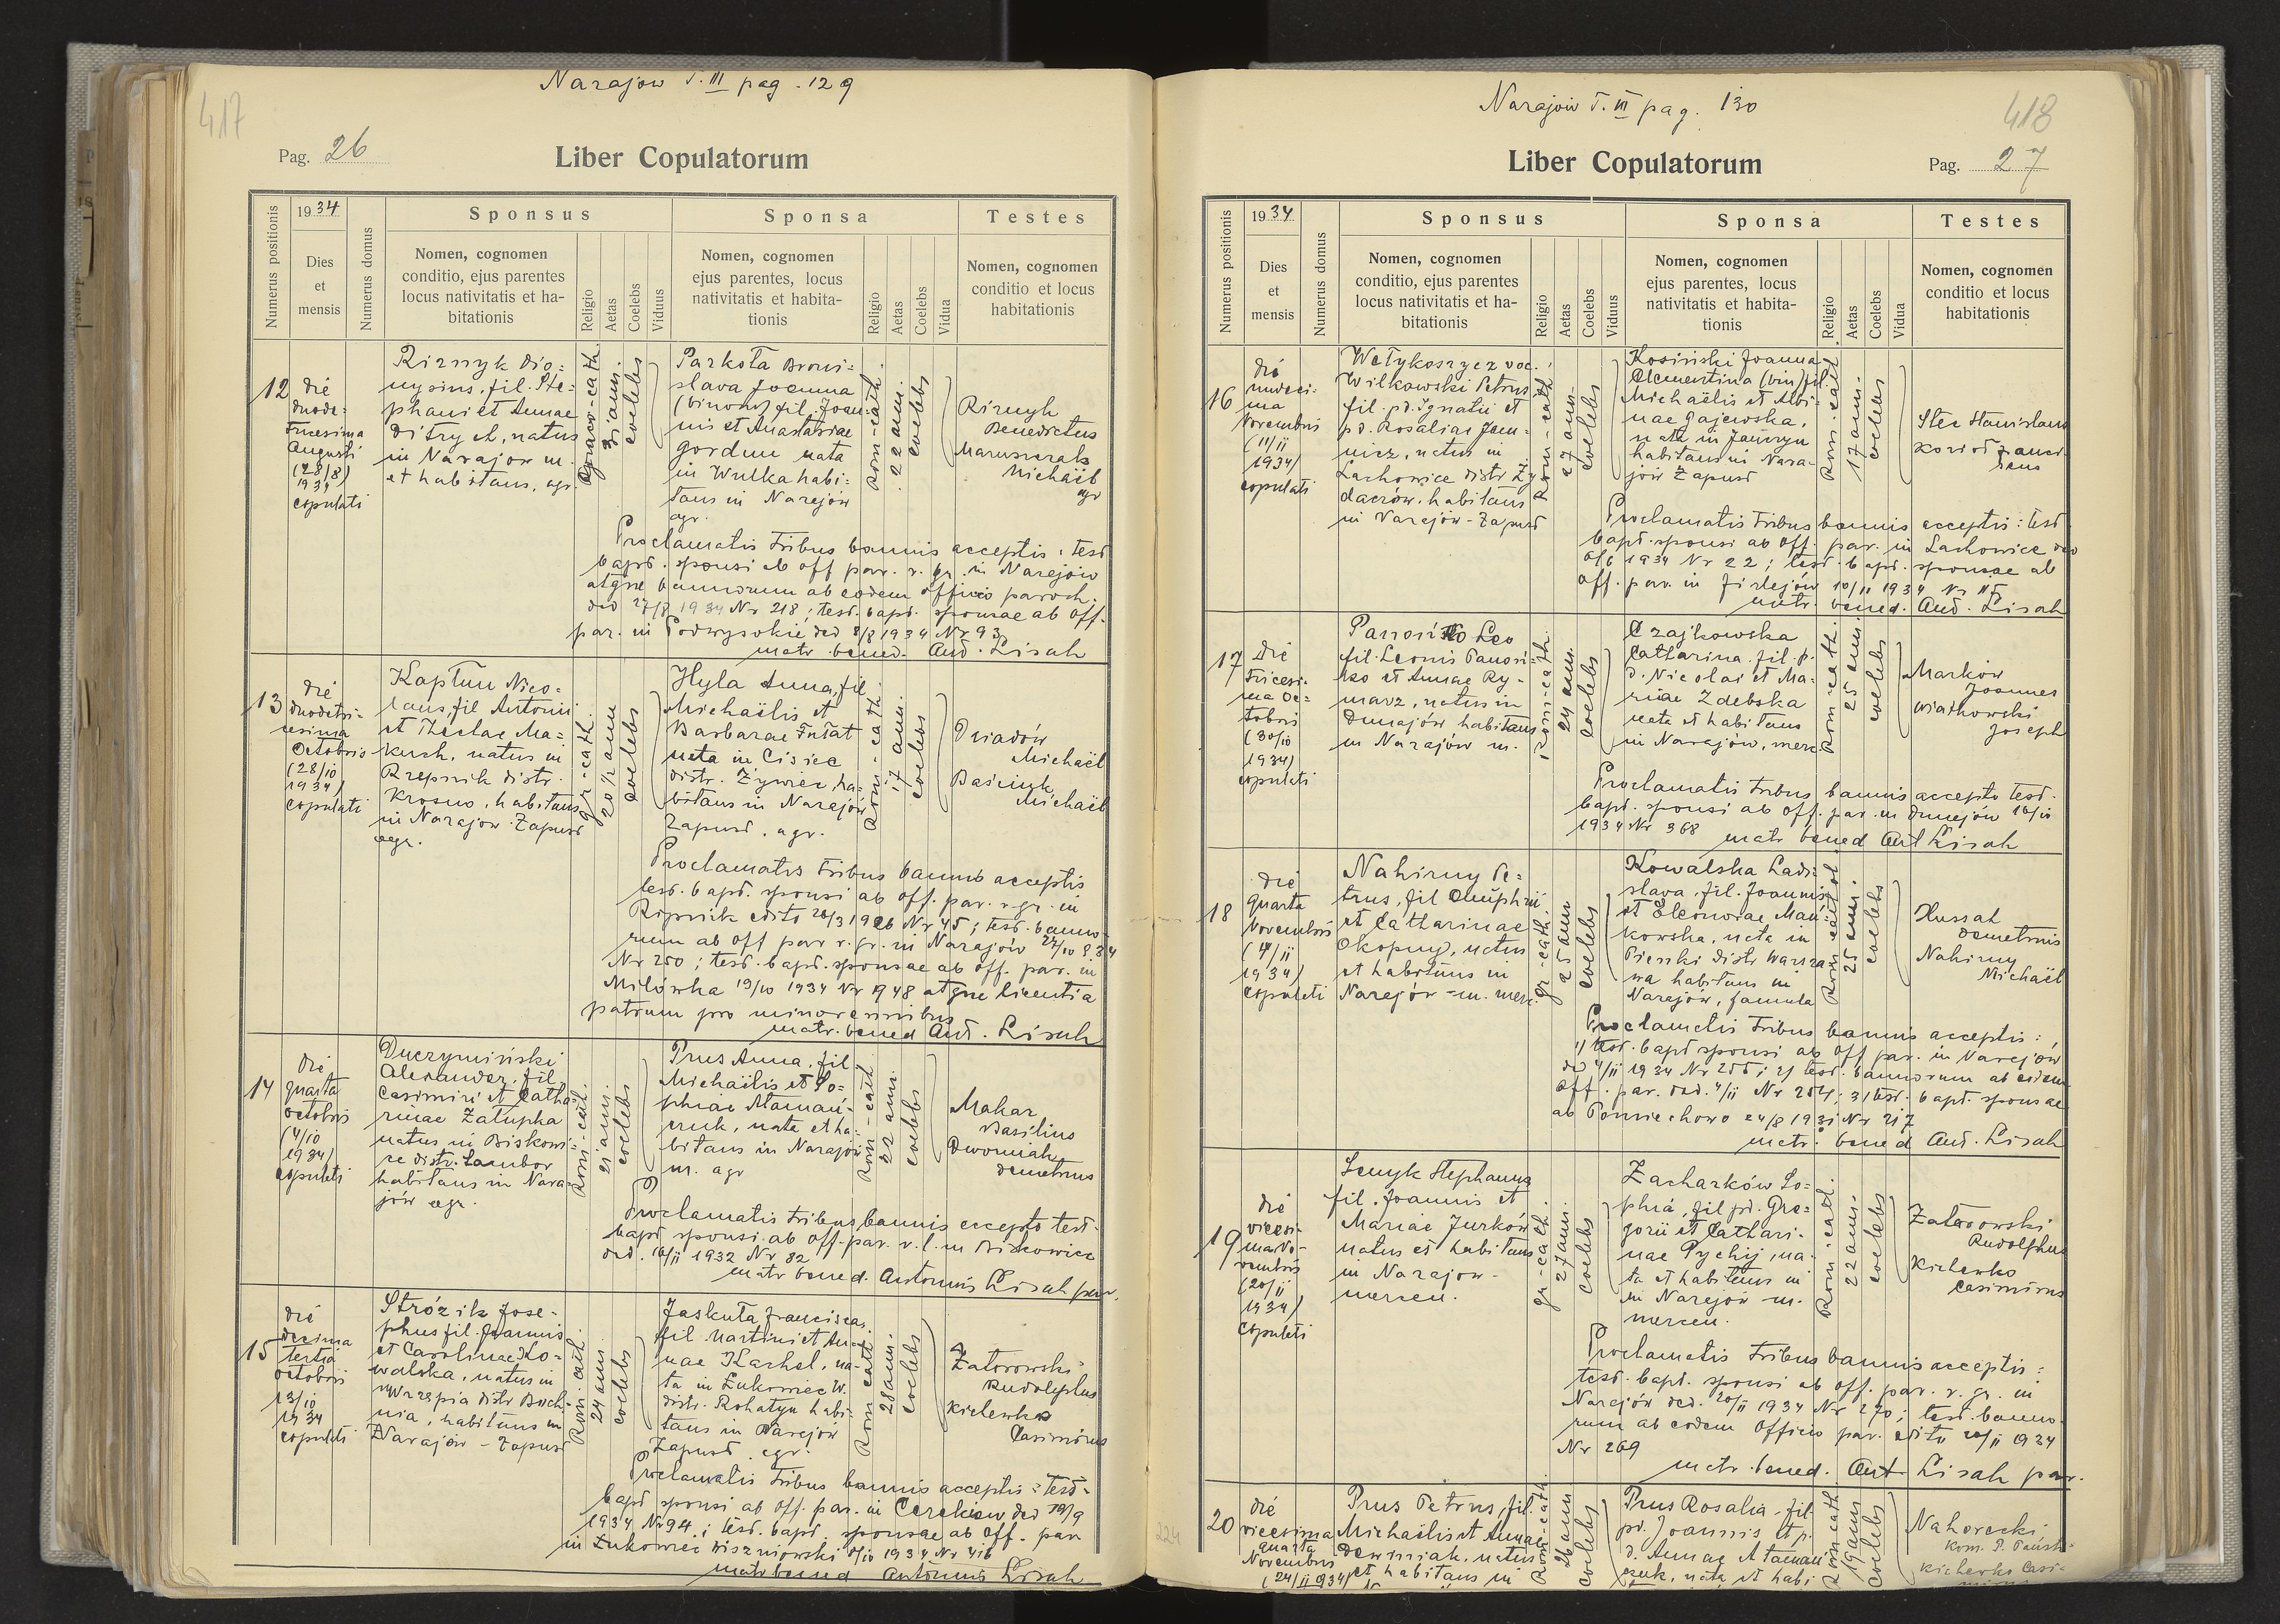 Narajow T. III pag. 129
417
Pag. 26
Liber Copulatorum
Numerus positionis
1934
Dies
et
mensis
Numerus domus
Sponsus
Nomen, cognomen
conditio, ejus parentes
locus nativitatis et ha-
bitationis
Religio
Aetas
Coelebs
Viduus
Sponsa
Nomen, cognomen
ejus parentes, locus
nativitatis et habita-
tionis
Religio
Aetas
Coelebs
Vidua
Testes
Nomen, cognomen
conditio et locus
habitationis
12
die
duode-
tricesima
Augusti
(28/8)
1934
copulati
Riznyk Dio=
nysius, fil. Ste=
phani et Annae
Ditry et, natus
in Narajow m.
et habitans, agr.
Graeco-cath
31 anni.
coelebs
Parkota Broni=
slava Joanna
(binom) fil. Joan-
nis et Anastasiae
Gordun nata
in Wulka habi=
tans in Narajów
agr.
Rom-cath.
22 anni.
coelebs
Riznyk
Benedictus
Michaël
agr
Proclamatis tribus bannis acceptis: test
bapt. sponsi ab off par. r. gr. in Narajów
atque bannorum ab eodem officio paroch.
ded 27/8 1934 Nr 218; test. bapt. sponsae ab off.
par. in Podwysokie ded 8/8 1934 Nr 93
matr. bened. Ant. Lisak
13
die
duodetri-
cesima
Octobris
(28/10
1934)
copulati
Kaptun Nico=
laus, fil Antonii
et Theclae Ma=
kuch, natus in
Rzepnik distr.
Krosno, habitans
in Narajow-Zapust
agr.
gr-cath.
20½ ann
coelebs
Hyla Anna, fil
Michaëlis et
Barbarae Futat
nata in Cisiec
distr. Żywiec, ha-
bitans in Narajów
Zapust, agr.
Rom-cath.
17 anni.
coelebs
Dziadów
Michaël
Michaël
Proclamatis tribus bannis acceptis
test. bapt. sponsi ab off. par. r. gr. in
Ripnik edito 20/3 1926 Nr 45; test. banno-
rum ab off par r. gr. in Narajów 27/10 934
Nr 250; test. bapt. sponsae ab off. par. in
Milówka 19/10 1934 Nr 948 atque licentia
patrum pro minorennibus
matr. bened Ant. Lisak
14
die
quarta
octobris
(4/10
1934)
copulati
Duczymiński
Alexander, fil
Casimiri et Catha-
rinae Załupka
natus in Biskowi=
ce distr. Sambor
habitans in Nara-
jów agr.
Rom-cath.
21 anni.
coelebs
Prus Anna, fil
Michaëlis et So=
phiae Ataman-
czuk, nata et ha-
bitans in Narajów
m. agr
Rom-cath
22 anni.
coelebs
Makar
Basilius
Dworniak
Demetrius
Proclamatis tribus bannis accepto test.
bapt sponsi ab off. par. r. l. in Biskowice
ded. 16/11 1932 Nr 82
matr bened. Antonius Lisak par.
15
die
decima
tertia
octobri
13/10
1934
copulati
Stróżik Jose-
phus fil. Joannis
et Carolinae Ko-
walska, natus in
Wrzepia distr Boch-
nia, habitans in
Narajów - Zapust
Rom. cath.
24 anni.
coelebs
Jaskuła Francisca,
fil Martini et An-
nae Karhel, na-
ta in Żukowiec W.
distr. Rohatyn habi-
tans in Narajów
Zapust, agr.
Rom cath
28 anni.
coelebs
Zatorowski
Rudolphus
Kielewko
Casimirus
Proclamatis tribus bannis acceptis: test-
bapt sponsi ab off. par. in Cerekiew ded 18/9
1934 Nr 94; test. bapt. sponsae ab off. par
in Żukowiec Wiszniowski 8/10 1934 Nr 416
matr bened Antonius Lisak
Narajów T. III pag. 130
418
Liber Copulatorum
Pag. 27
Numerus positionis
1934
Dies
et
mensis
Numerus domus
Sponsus
Nomen, cognomen
conditio, ejus parentes
locus nativitatis et ha-
bitationis
Religio
Aetas
Coelebs
Viduus
Sponsa
Nomen, cognomen
ejus parentes, locus
nativitatis et habita-
tionis
Religio
Aetas
Coelebs
Vidua
Testes
Nomen, cognomen
conditio et locus
habitationis
16
die
undeci-
ma
Novembri
(11/11
1934)
copulati
Wełykoszycz voc.
Wilkowski Petrus
fil. pd. Ignatii et
pd. Rosaliae Jani-
nicz, natus in
Lachowice distr Ży
daczów, habitans
in Narajów-Zapust
Rom-cath
27 ann.
coelebs
Kosiński Joanna
Clementina (bin) fil.
Michaëlis et Albi-
nae Gajewska,
nata in Janczyn
habitans in Nara-
jów Zapust
Rom-cath.
17 ann.
coelebs
Stec Stanislaus
Proclamatis tribus bannis acceptis: test
bapt. sponsi ab off. par. in Lachowice ded
1934 Nr 22; test. bapt. sponsae ab
off. par. in Firlejów 10/11 1934 Nr 115
matr. bened. Ant. Lisak
17
die
tricesi-
ma oc-
tobri
(30/10
1934)
copulati
Panońko Leo
fil. Leonis Panoń-
ko et Annae Ry-
marz, natus in
Dunajów habitans
in Narajów m.
Rom-cath.
24 ann.
coelebs
Czajkowska
Catharina fil. p.
d. Nicolai et Ma-
riae Zdebska
nata et habitans
in Narajów, merc
Rom-cath.
25 ann.
coelebs
Marków
Joannes
Wiatkowski
Joseph
Proclamatis tribus bannis accepto test.
bapt. sponsi ab off. par. in Dunajów 16/10
1934 Nr 368
matr bened Ant Lisak
18
die
quarta
Novembris
(4/11
1934)
copulati
Nahirny Pe=
trus, fil Onuphrii
et Catharinae
Okopny, natus
et habitans in
Narajów-m. merc.
gr-cath.
25 ann
coelebs
Kowalska Ladi-
slava, fil. Joannis
et Eleonorae Mań-
kowska, nata in
Pienki distr Warsza
wa habitans in
Narajów, famula
Rom-cathol
25 ann.
coelebs
Hussak
Demetrius
Nahirny
Michaël
Proclamatis tribus bannis acceptis:
1) test. bapt sponsi ab off par. in Narajów
de 4/11 1934 Nr 255; 2) test. bannorum ab eodem
off. par. ded. 4/11 Nr 254; 3) test. bapt. sponsae
ab Pomiechowo 24/8 1931 Nr 217
matr. bened Ant. Lisak
19
die
vicesi-
ma No-
vembris
(20/11
1934)
copulati
Senyk Stephanus
fil. Joannis et
Mariae Jurków
natus et habitans
in Narajow-
mercen.
gr-cath.
27 ann.
coelebs
Zacharków So=
phia, fil pd. Gre-
gorii et Cathari-
nae Pychij, na-
ta et habitans in
in Narajów m.
mercen.
Rom-cath.
22 ann.
coelebs
Zatorowski
Rudolphus
Kielewko
Casimirus
Proclamatis tribus bannis acceptis:
test. bapt. sponsi ab off. par. r. gr. in
Narajów ded. 20/11 1934 Nr 270; test. banno-
rum ab eodem officio par. edito 20/11 1934
Nr 269
matr. bened. Ant Lisak par.
224
20
die
vicesima
quarta
Novembris
(24/11 934)
Prus Petrus, fil.
Michaëlis et Annae
Dworniak, natus
et habitans in
Rom-cath.
26 ann
coelebs
Prus Rosalia, fil
pd. Joannis et p.
d. Annae Ataman
czuk, nata et habi
Rom-cath
19 ann
coelebs
Nahorecki
Kielewko Casi-